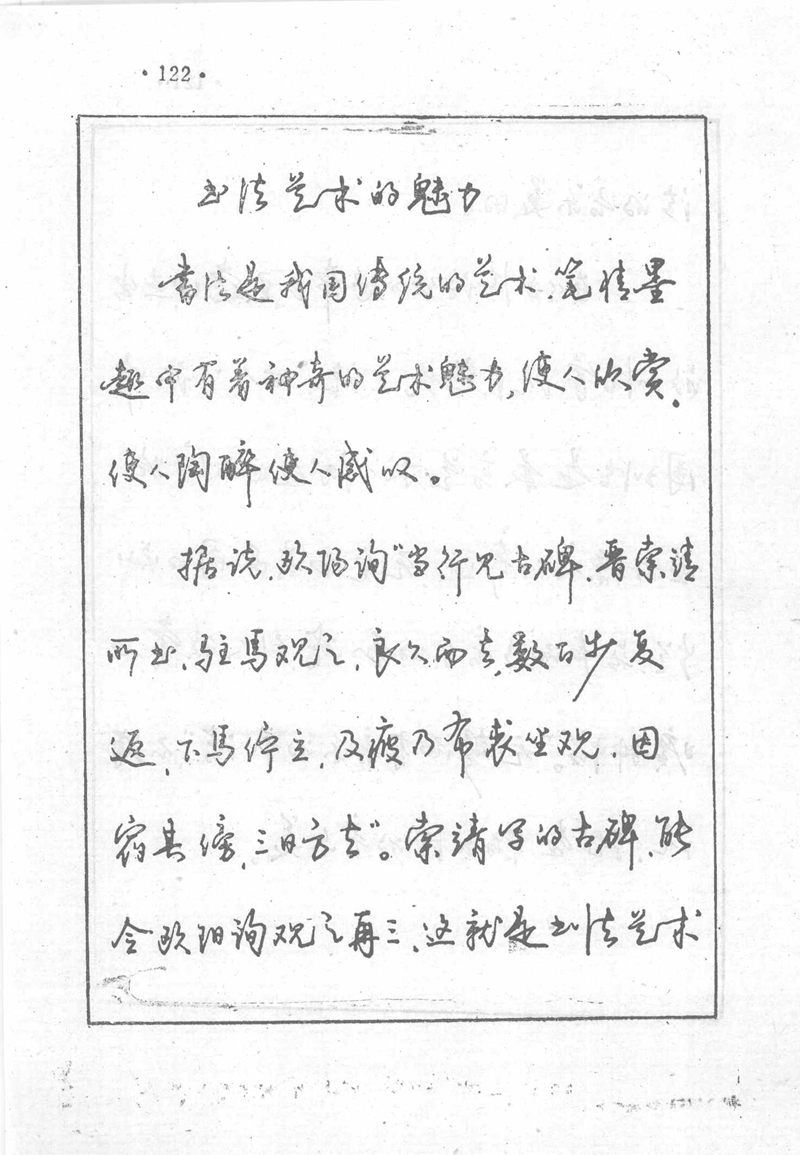 ·122·
书法艺术的魅力
書法是我国传统的艺术、笔情墨
趣中有着神奇的艺术魅力,使人欣赏。
使人陶醉使人感叹。
据说,欧阳询“尝行见古碑、晋索靖
所书、驻马观之,良久而去,数百步复
返,下马伫立,及疲乃布裘坐观,因
宿其傍,三日方去”。索靖写的古碑,能
令欧阳询观之再三,这就是书法艺术